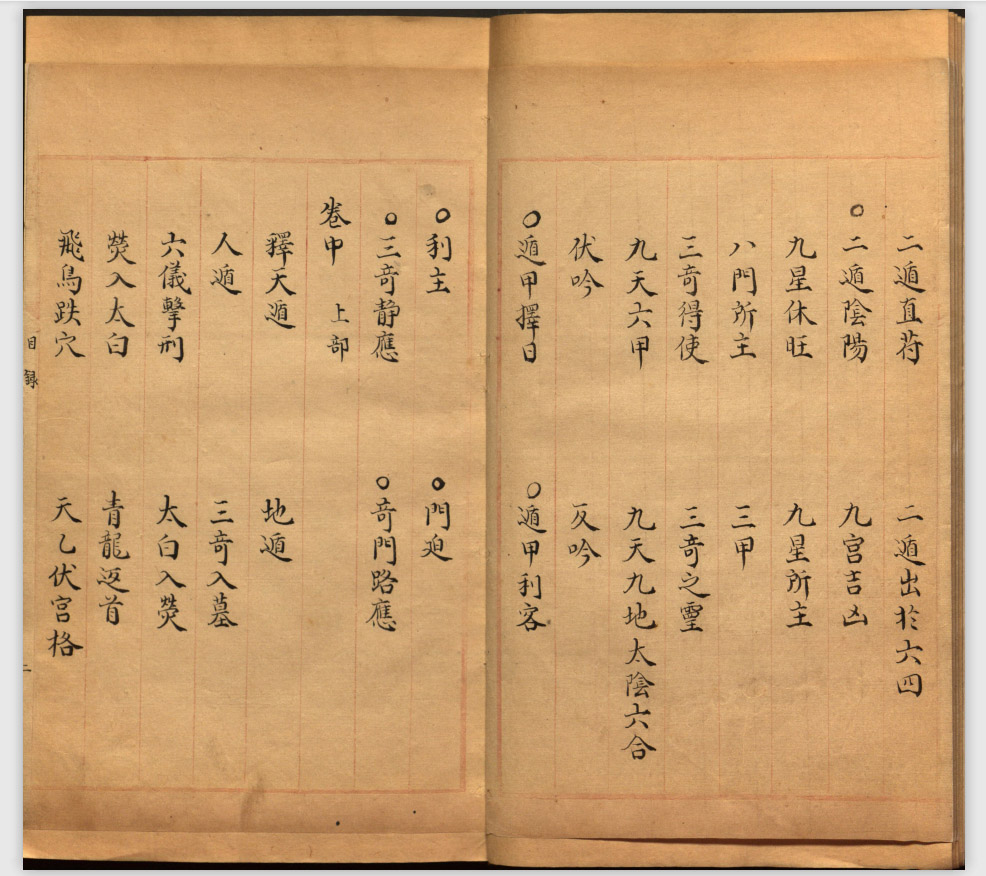 二遁直苻　二遁出於六四
○二遁陰陽　九宮吉凶
九星休旺　九星所主
八門所主　三甲
三奇得使　三奇之霊
九天六甲　九天九地太陰六合
伏吟　反吟
○遁甲擇日　○遁甲利客
○利主　○門迫
○三奇静應　○奇門路應
卷中　上部
釋天遁　地遁
人遁　三奇入墓
六儀擊刑　太白入熒
熒入太白　青龍返首
飛鳥跌穴　天乙伏宮格
目録　二